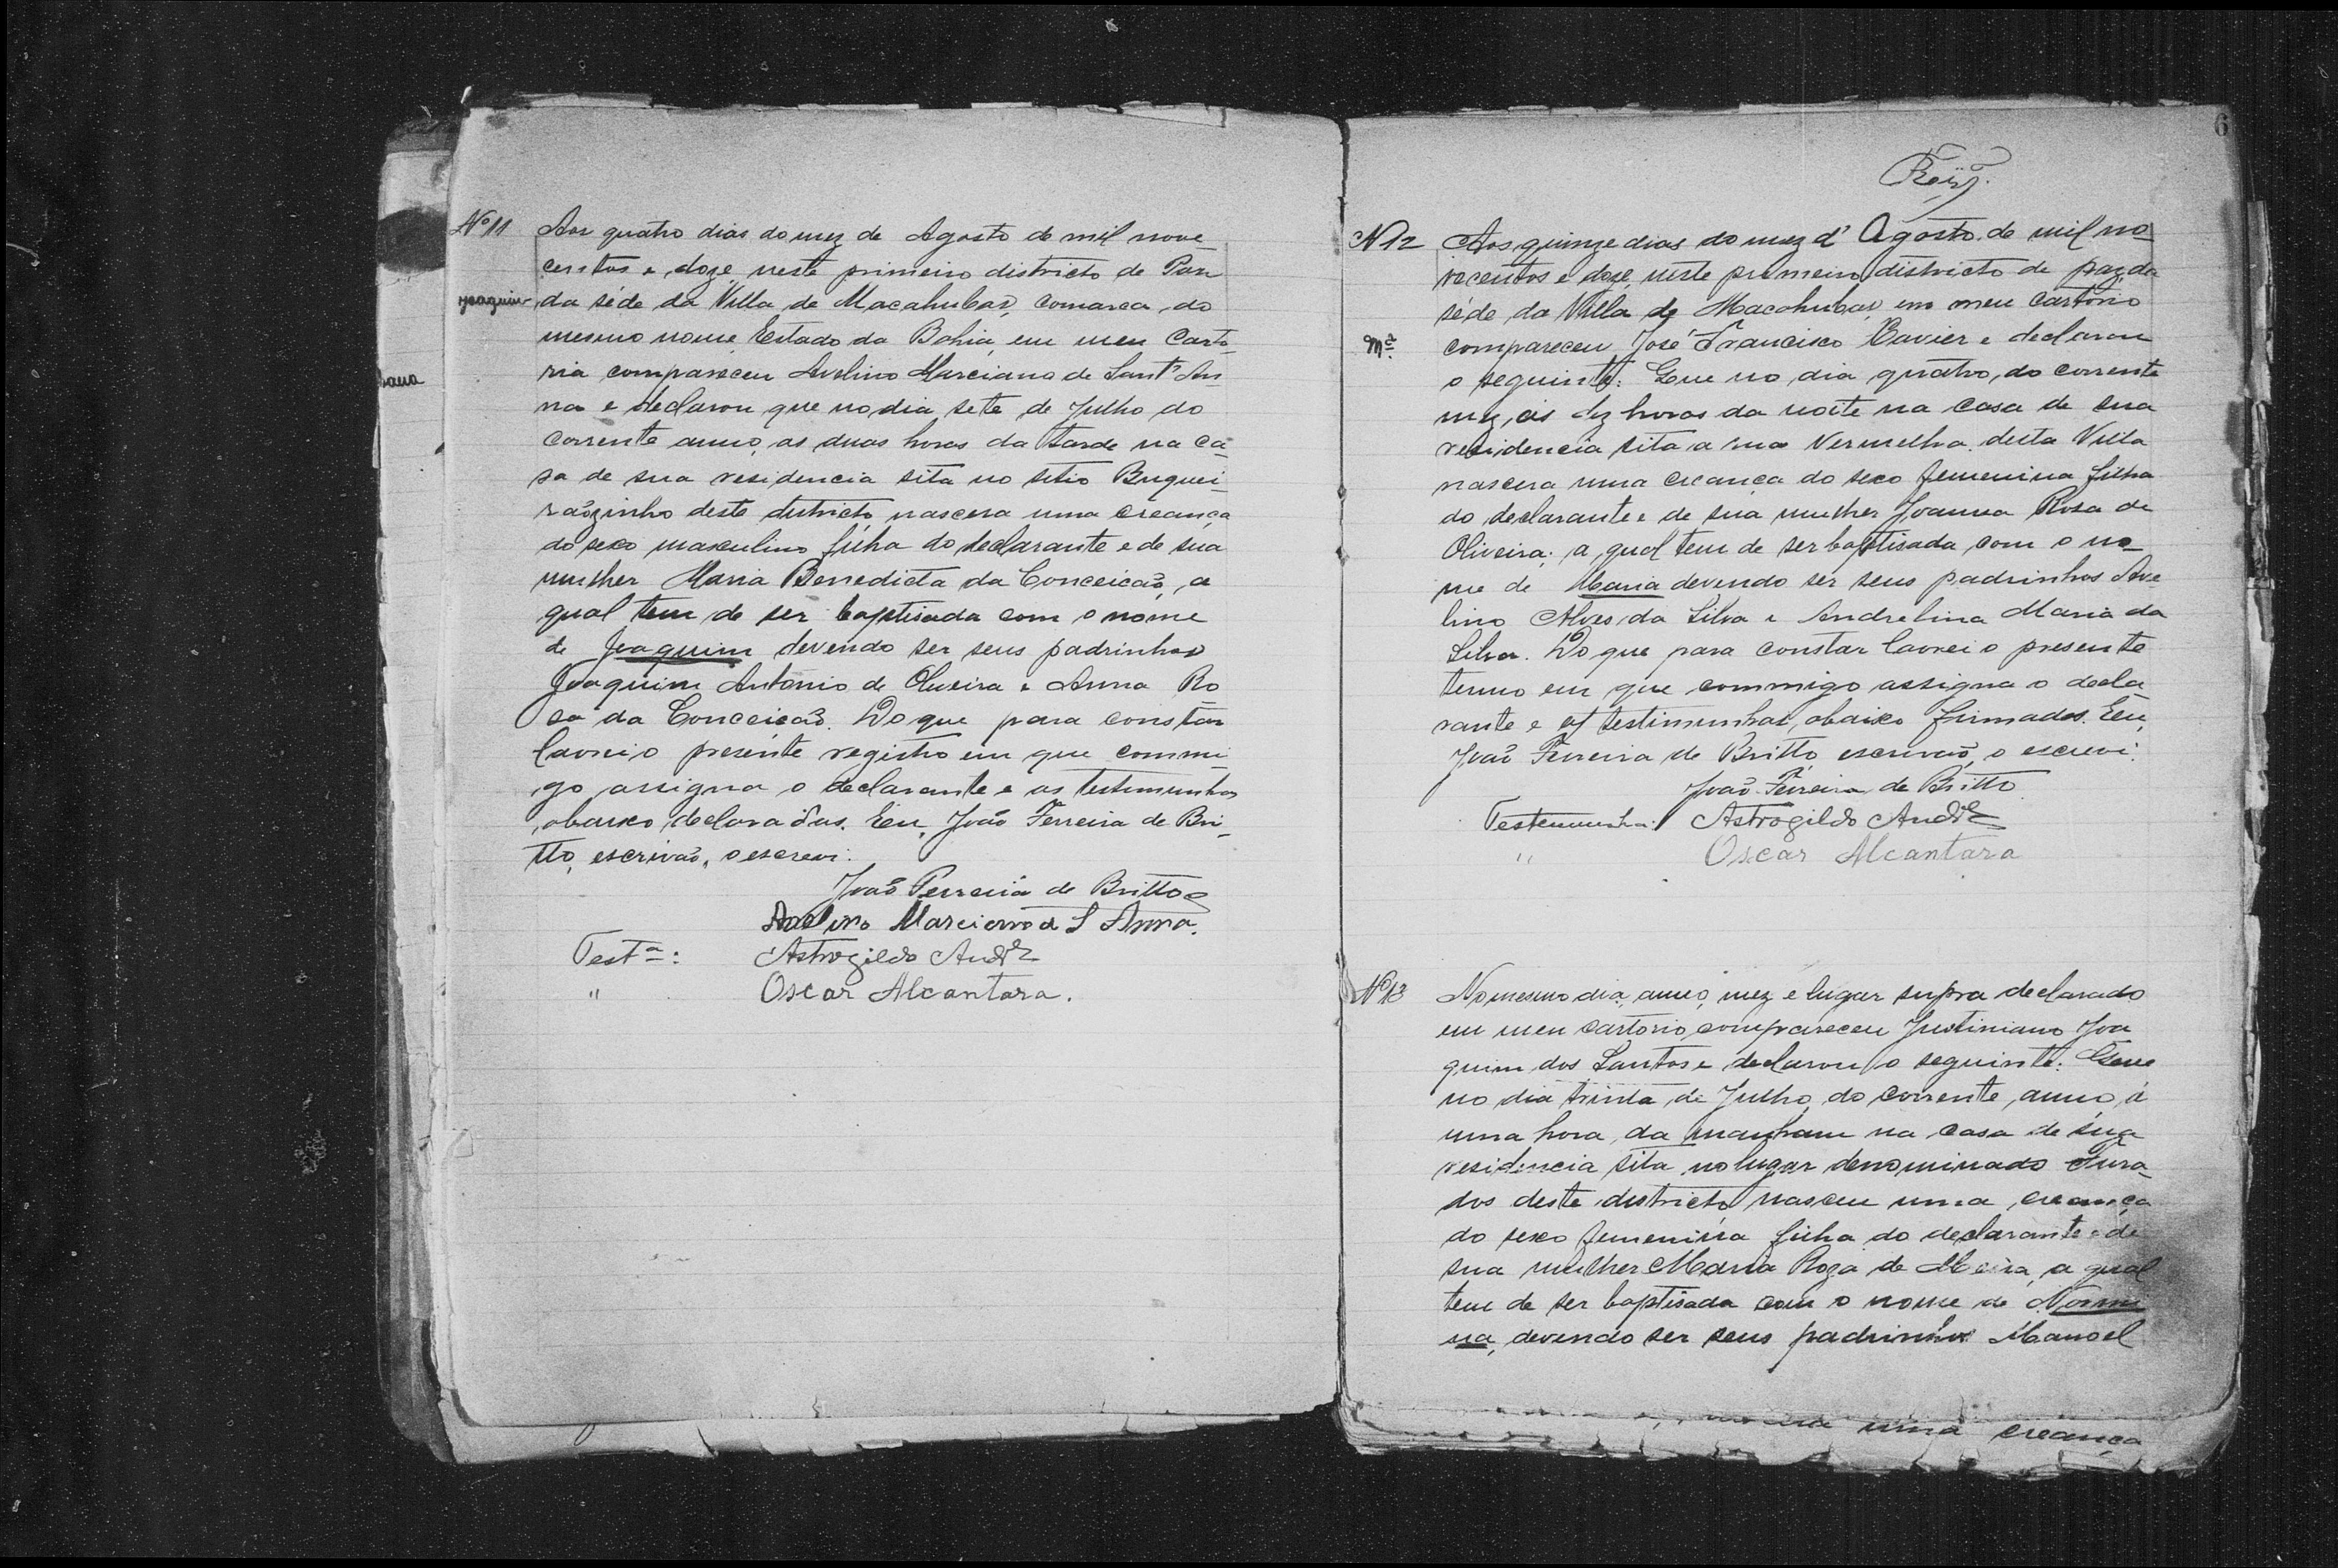 Nº 11
Aos quatro dias do mez de Agosto de mil nove
centos e doze neste primeiro districto de Paz
Joaquim
da séde da Villa de Macahubas, comarca do
mesmo nome, Estado da Bahia, em meu Carto-
rio compareceu Avelino Marciano de Sant'An-
na e declarou que no dia sete de Julho do
corrente anno, as duas horas da tarde na ca-
sa de sua residencia sita no sitio Buquei-
rãozinho deste districto, nascera uma creança
do sexo masculino filha do declarante e de sua
mulher Maria Benedicta da Conceicão, a
qual tem de ser baptisada com o nome
de Joaquim devendo ser seus padrinhos
Joaquim Antonio de Oliveira e Anna Ro
sa da Conceicão. Do que para constar
lavrei o presente registro em que commi-
go assigna o declarante e as testimunhas
abaixo declaradas. Eu, João Ferreira de Bri-
tto, escrivão, o escrevi.
João Ferreira de Britto
Avelino Marciano de S Anna.
Testª: Astrogildo Andᵉ
" Oscar Alcantara.
6
Nº 12
Aos quinze dias do mez d' Agosto de mil no-
vecentos e doze, neste primeiro districto de paz da
séde da Villa de Macahubas, em meu cartorio
Mª
compareceu José Francisco Xavier e declarou
o seguinte: Que no dia quatro, do corrente
mez, ás dez horas da noite na casa de sua
residencia sita a rua Vermelha desta Villa
nascera uma creança do sexo femenina filha
do declarante e de sua mulher Joanna Rosa de
Oliveira, a qual tem de ser baptisada com o no-
me de Maria devendo ser seus padrinhos Ave
lino Alves da Silva e Andrelina Maria da
Silva. Do que para constar lavrei o presente
termo em que commigo assigna o decla-
rante e as testimunhas, abaixo firmados. Eu,
João Ferreira de Britto escrivão, o escrevi.
João Ferreira de Britto
Testemunha: Astrogildo Andᵉ
" Oscar Alcantara
Nº 13
No mesmo dia, anno, mez e lugar supra declarado
em meu cartorio, compareceu Justiniano Joa
quim dos Santos e declarou o seguinte: Que
no dia trinta de Julho, do corrente, anno, á
uma hora, da manham na casa de sua
residencia sita no lugar denominado Fura-
dos deste districto nasceu uma creança
do sexo femenina filha do declarante e de
sua mulher Maria Roza de Meira, a qual
tem de ser baptisada com o nome de Normi
na, devendo ser seus padrinhos Manoel
uma creança